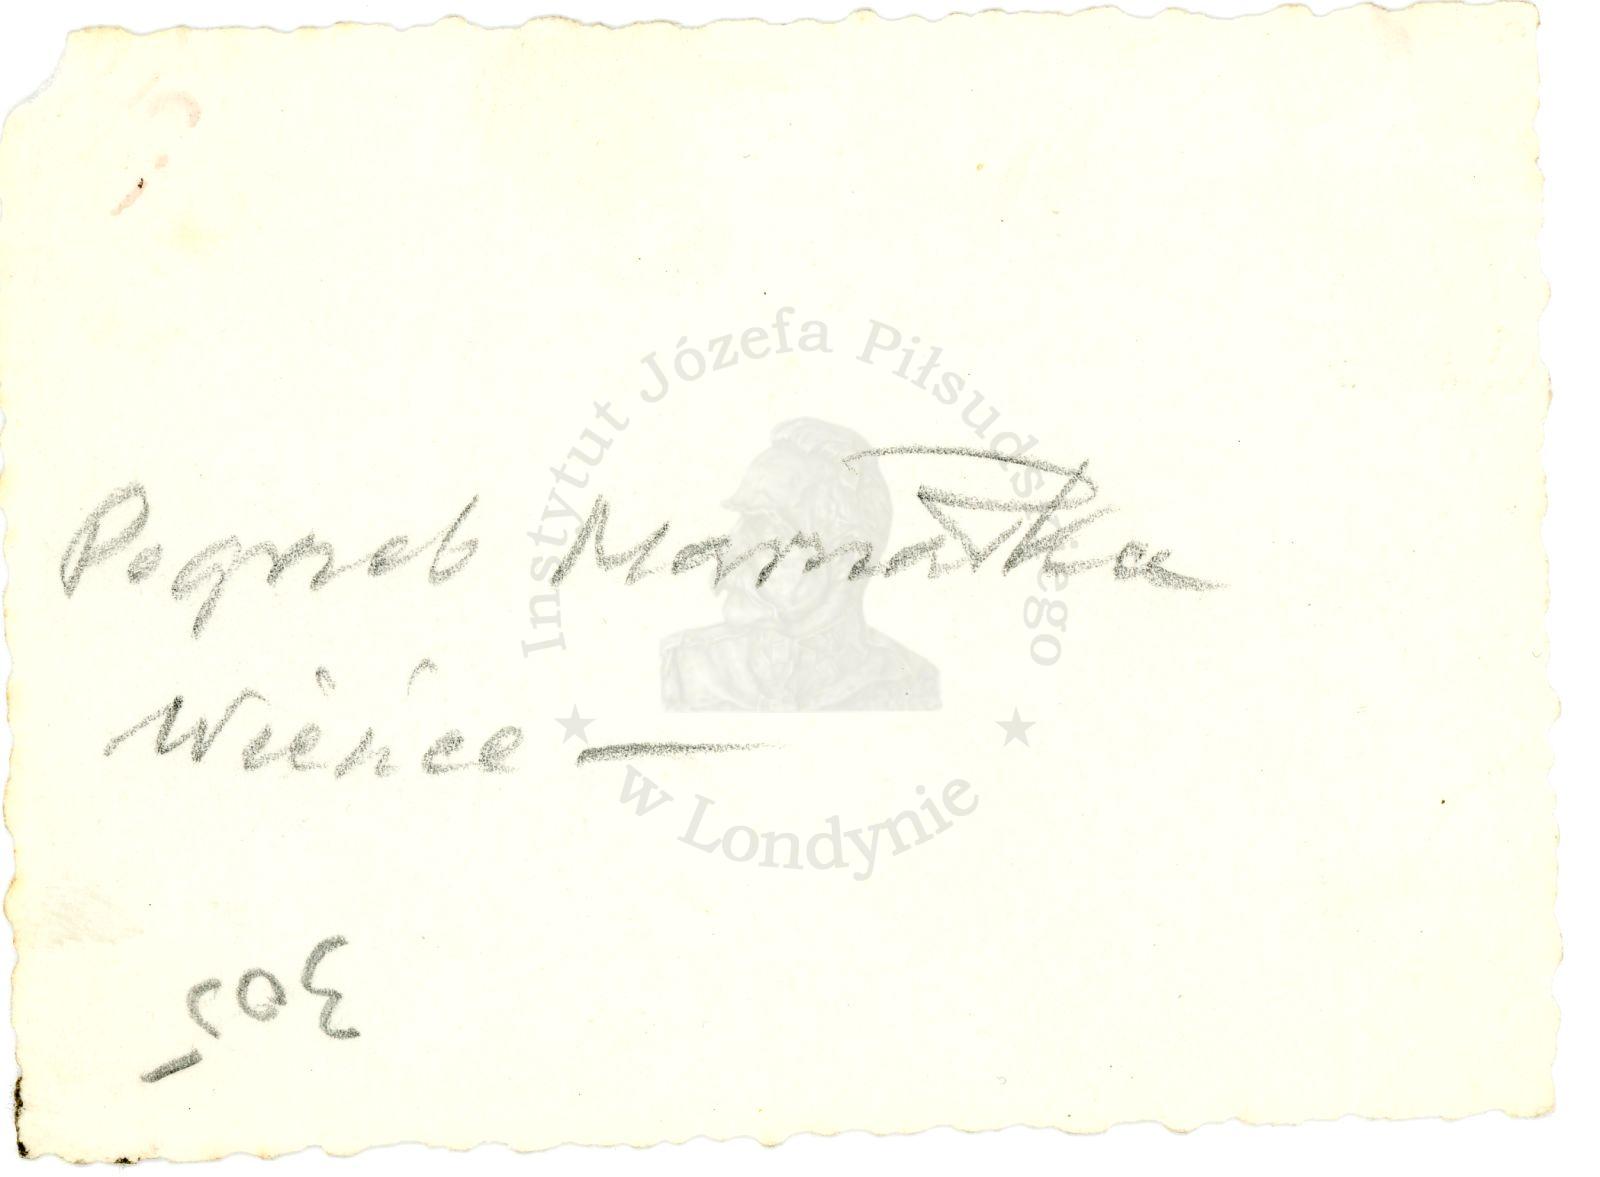 Instytut Józefa Piłsudskiego
Pogrzeb Marszałka
Wieńce —
w Londynie
305